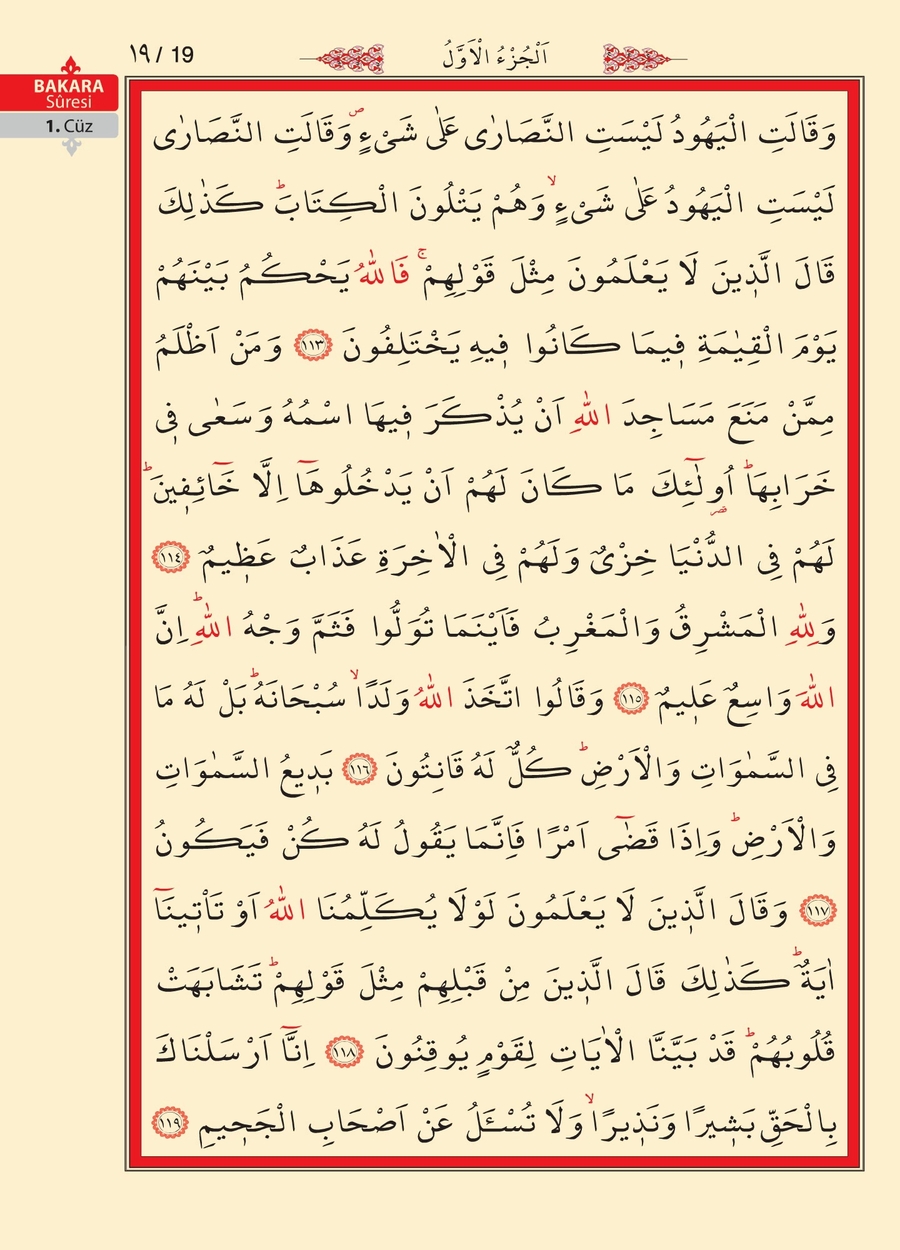 ١٩/ 19
اَلْجُزْءُ الْاَوَّلُ
BAKARA
Sûresi
1. Cüz
وَقَالَتِ الْيَهُودُ لَيْسَتِ النَّصَارٰى عَلٰى شَىْءٍۖ وَقَالَتِ النَّصَارٰى
لَيْسَتِ الْيَهُودُ عَلٰى شَىْءٍۙ وَهُمْ يَتْلُونَ الْكِتَابَۜ كَذٰلِكَ
قَالَ الَّذ۪ينَ لَا يَعْلَمُونَ مِثْلَ قَوْلِهِمْۚ فَاللّٰهُ يَحْكُمُ بَيْنَهُمْ
يَوْمَ الْقِيٰمَةِ ف۪يمَا كَانُوا ف۪يهِ يَخْتَلِفُونَ ﴿١١٣﴾ وَمَنْ اَظْلَمُ
مِمَّنْ مَنَعَ مَسَاجِدَ اللّٰهِ اَنْ يُذْكَرَ ف۪يهَا اسْمُهُ وَسَعٰى ف۪ى
خَرَابِهَاۜ اُولٰٓئِكَ مَا كَانَ لَهُمْ اَنْ يَدْخُلُوهَٓا اِلَّا خَٓائِف۪ينَۜ
لَهُمْ فِى الدُّنْيَا خِزْىٌ وَلَهُمْ فِى الْاٰخِرَةِ عَذَابٌ عَظ۪يمٌ ﴿١١٤﴾
وَلِلّٰهِ الْمَشْرِقُ وَالْمَغْرِبُ فَاَيْنَمَا تُوَلُّوا فَثَمَّ وَجْهُ اللّٰهِۜ اِنَّ
اللّٰهَ وَاسِعٌ عَل۪يمٌ ﴿١١٥﴾ وَقَالُوا اتَّخَذَ اللّٰهُ وَلَدًاۙ سُبْحَانَهُۜ بَلْ لَهُ مَا
فِى السَّمٰوَاتِ وَالْاَرْضِۜ كُلٌّ لَهُ قَانِتُونَ ﴿١١٦﴾ بَد۪يعُ السَّمٰوَاتِ
وَالْاَرْضِۜ وَاِذَا قَضٰٓى اَمْرًا فَاِنَّمَا يَقُولُ لَهُ كُنْ فَيَكُونُ
﴿١١٧﴾ وَقَالَ الَّذ۪ينَ لَا يَعْلَمُونَ لَوْلَا يُكَلِّمُنَا اللّٰهُ اَوْ تَأْت۪ينَٓا
اٰيَةٌۜ كَذٰلِكَ قَالَ الَّذ۪ينَ مِنْ قَبْلِهِمْ مِثْلَ قَوْلِهِمْۜ تَشَابَهَتْ
قُلُوبُهُمْۜ قَدْ بَيَّنَّا الْاٰيَاتِ لِقَوْمٍ يُوقِنُونَ ﴿١١٨﴾ اِنَّٓا اَرْسَلْنَاكَ
بِالْحَقِّ بَش۪يرًا وَنَذ۪يرًاۙ وَلَا تُسْـَٔلُ عَنْ اَصْحَابِ الْجَح۪يمِ ﴿١١٩﴾